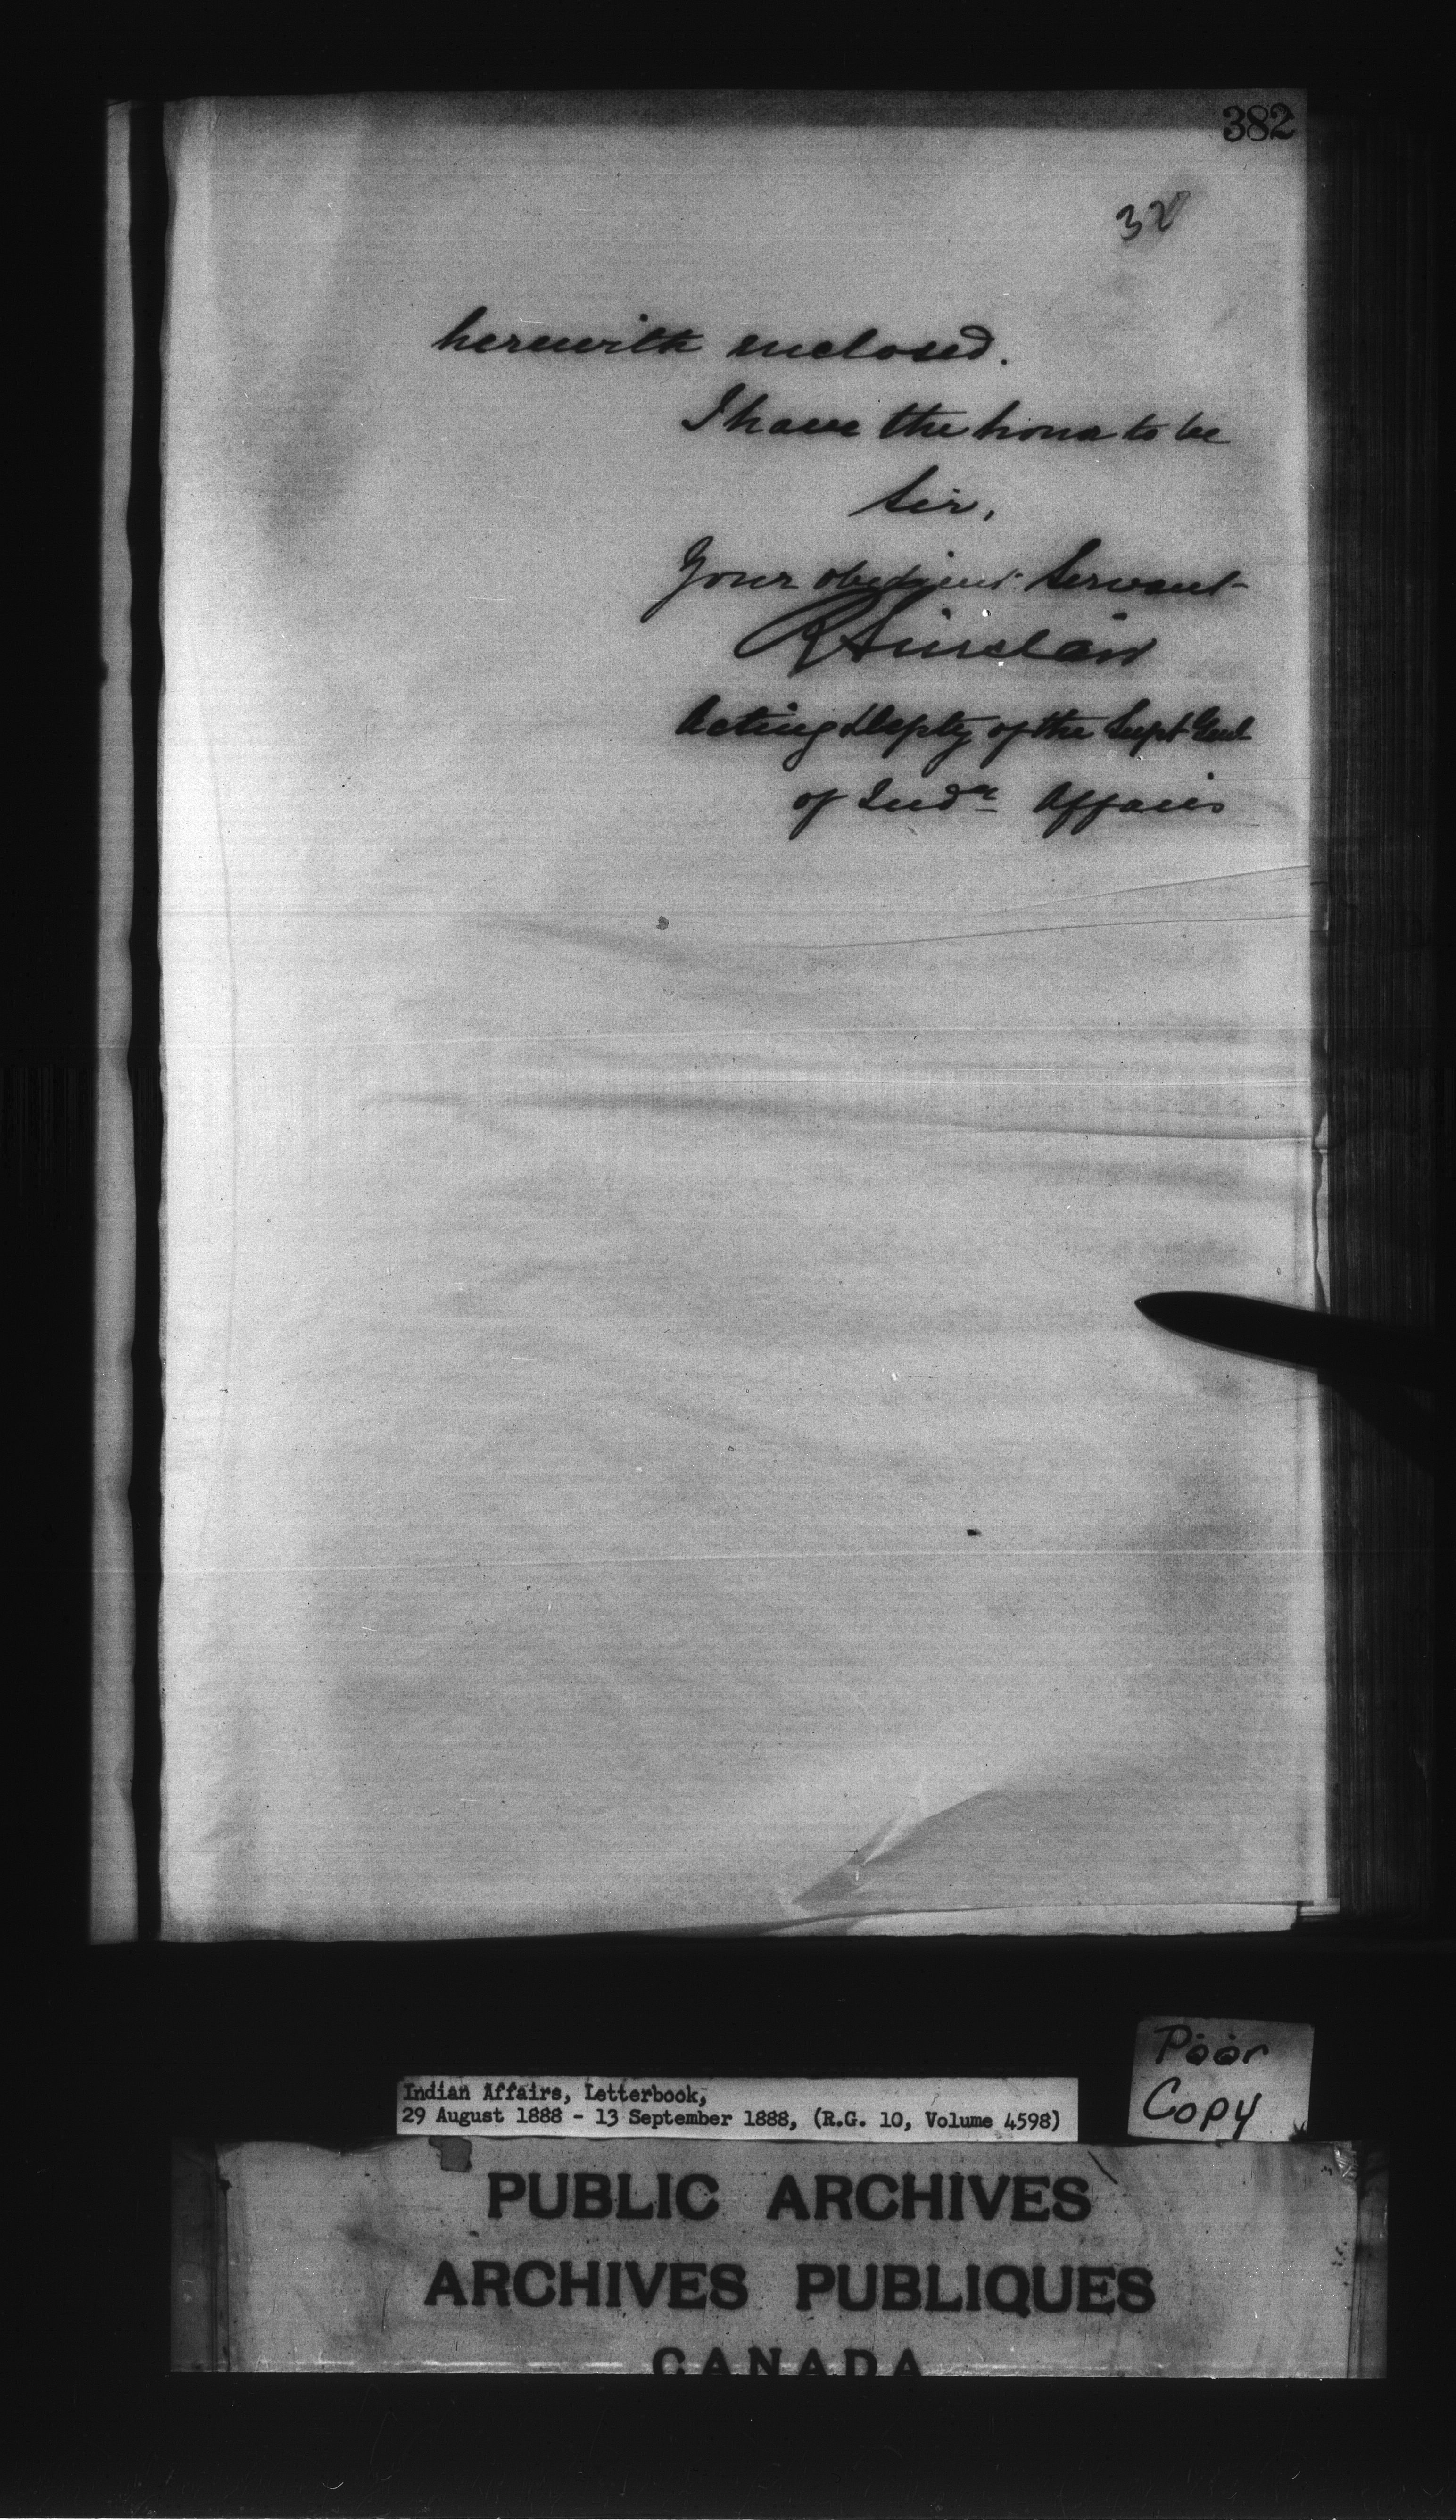 382
32
herewith enclosed.
I have the honor to be
Sir,
Your obedient Servant
R Sinclair
Acting Depty of the Supt Genl
of Indn Affairs
Poor
Copy
Indian Affairs, Letterbook,
29 August 1888 - 13 September 1888, (R.G. 10, Volume 4598)
PUBLIC ARCHIVES
ARCHIVES PUBLIQUES
CANADA